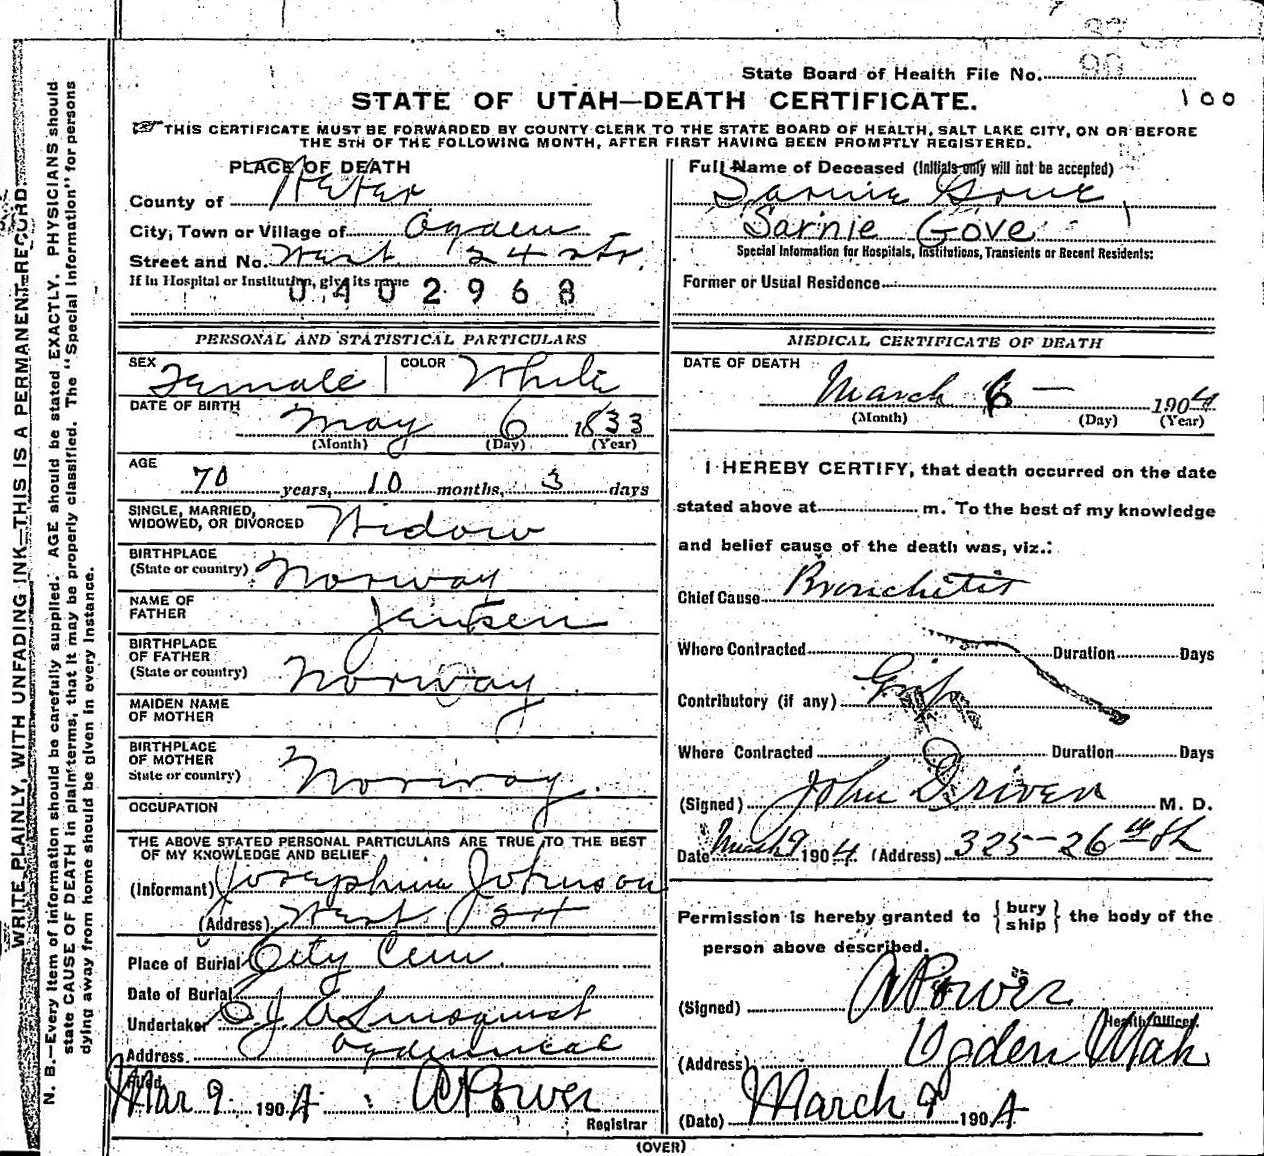 State Board of Health File No.
100
STATE OF UTAH—DEATH CERTIFICATE.
THIS CERTIFICATE MUST BE FORWARDED BY COUNTY CLERK TO THE STATE BOARD OF HEALTH, SALT LAKE CITY, ON OR BEFORE
THE 5TH OF THE FOLLOWING MONTH, AFTER FIRST HAVING BEEN PROMPTLY REGISTERED.
WRITE PLAINLY, WITH UNFADING INK—THIS IS A PERMANENT RECORD.
N. B.—Every item of information should be carefully supplied. AGE should be stated EXACTLY. PHYSICIANS should
state CAUSE OF DEATH in plain terms, that it may be properly classified. The "Special Information" for persons
dying away from home should be given in every instance.
PLACE OF DEATH
County of Weber
City, Town or Village of Ogden
Street and No. West 24 Str.
If in Hospital or Institution, give its name
0402968
PERSONAL AND STATISTICAL PARTICULARS
SEX Female COLOR White
DATE OF BIRTH
May 6 1833
(Month) (Day) (Year)
AGE
70 years, 10 months, 3 days
SINGLE, MARRIED,
WIDOWED, OR DIVORCED Widow
BIRTHPLACE
(State or country) Norway
NAME OF
FATHER Jentsen
BIRTHPLACE
OF FATHER
(State or country) Norway
MAIDEN NAME
OF MOTHER
BIRTHPLACE
OF MOTHER
State or country) Norway.
OCCUPATION
THE ABOVE STATED PERSONAL PARTICULARS ARE TRUE TO THE BEST
OF MY KNOWLEDGE AND BELIEF
(Informant) Josephine Johnson
(Address) West 24
Place of Burial City Cem.
Date of Burial
Undertaker
Address.
Filed
Mar 9 1904 A Power
Registrar
Full Name of Deceased (Initials only will not be accepted)
Sarnie Gove
Sarnie Gove
Special Information for Hospitals, Institutions, Transients or Recent Residents:
Former or Usual Residence
MEDICAL CERTIFICATE OF DEATH
DATE OF DEATH
March 6 — 1904
(Month) (Day) (Year)
I HEREBY CERTIFY, that death occurred on the date
stated above at m. To the best of my knowledge
and belief cause of the death was, viz.:
Chief Cause Bronchitis
Where Contracted Duration Days
Contributory (if any) Grip
Where Contracted Duration Days
(Signed) John Driver M. D.
Date March 9 1904 (Address) 325-26th
Permission is hereby granted to { bury ship } the body of the
person above described.
(Signed) A Power
Health Officer
(Address) Ogden Utah
(Date) March 9 1904
(OVER)